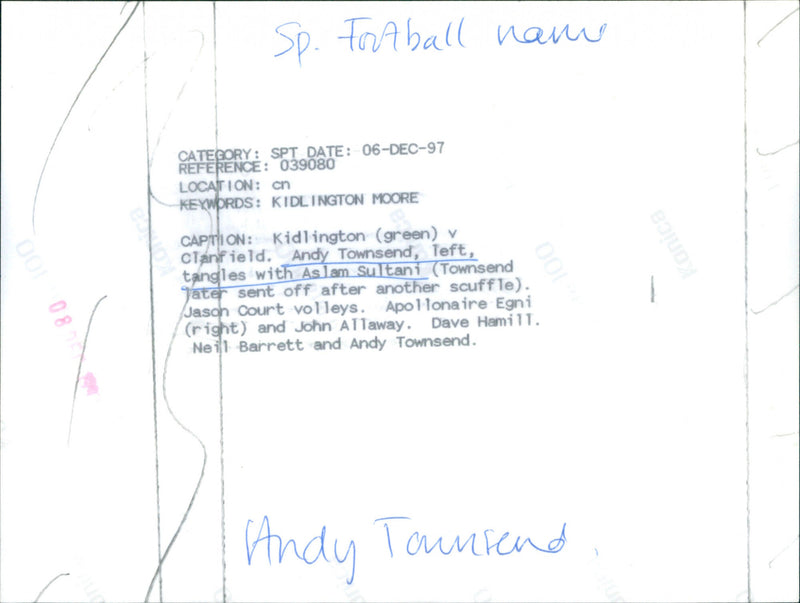 Sp. Football name
CATEGORY: SPT DATE: 06-DEC-97
REFERENCE: 039080
LOCATION: cn
KEYWORDS: KIDLINGTON MOORE
CAPTION: Kidlington (green) v
Clanfield. Andy Townsend, left,
tangles with Aslam Sultani (Townsend
later sent off after another scuffle).
Jason Court volleys. Apollonaire Egni
(right) and John Allaway. Dave Hamill.
Neil Barrett and Andy Townsend.
Andy Townsend.
08 DEC
Konica
Konica
Konica
100
100